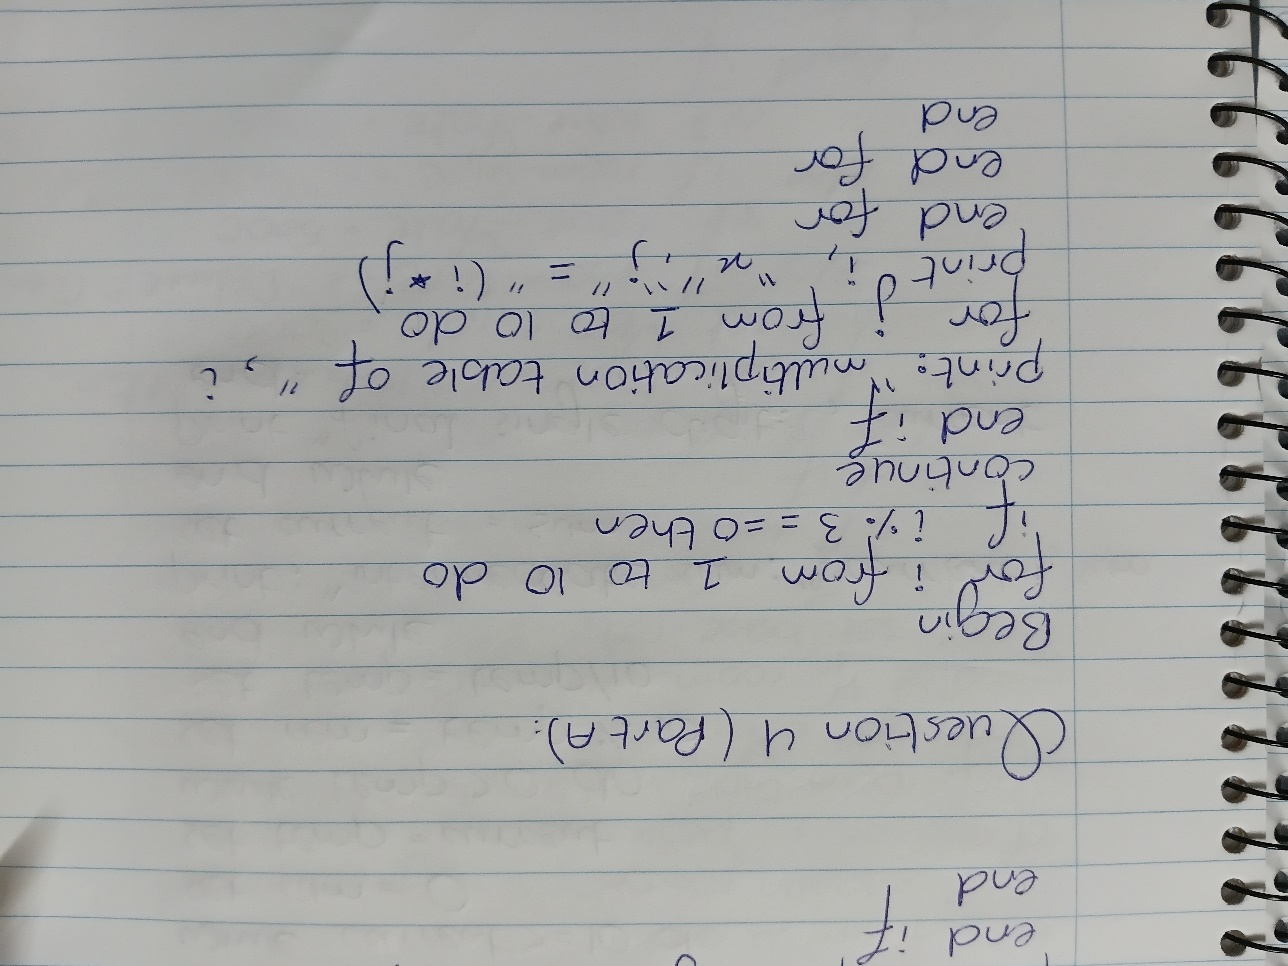 end if
end
Question 4 (Part A):
Begin
for i from 1 to 10 do
if i % 3 == 0 then
continue
end if
print: "multiplication table of ", i
for j from 1 to 10 do
print i, "x", j, " = " (i * j)
end for
end for
end